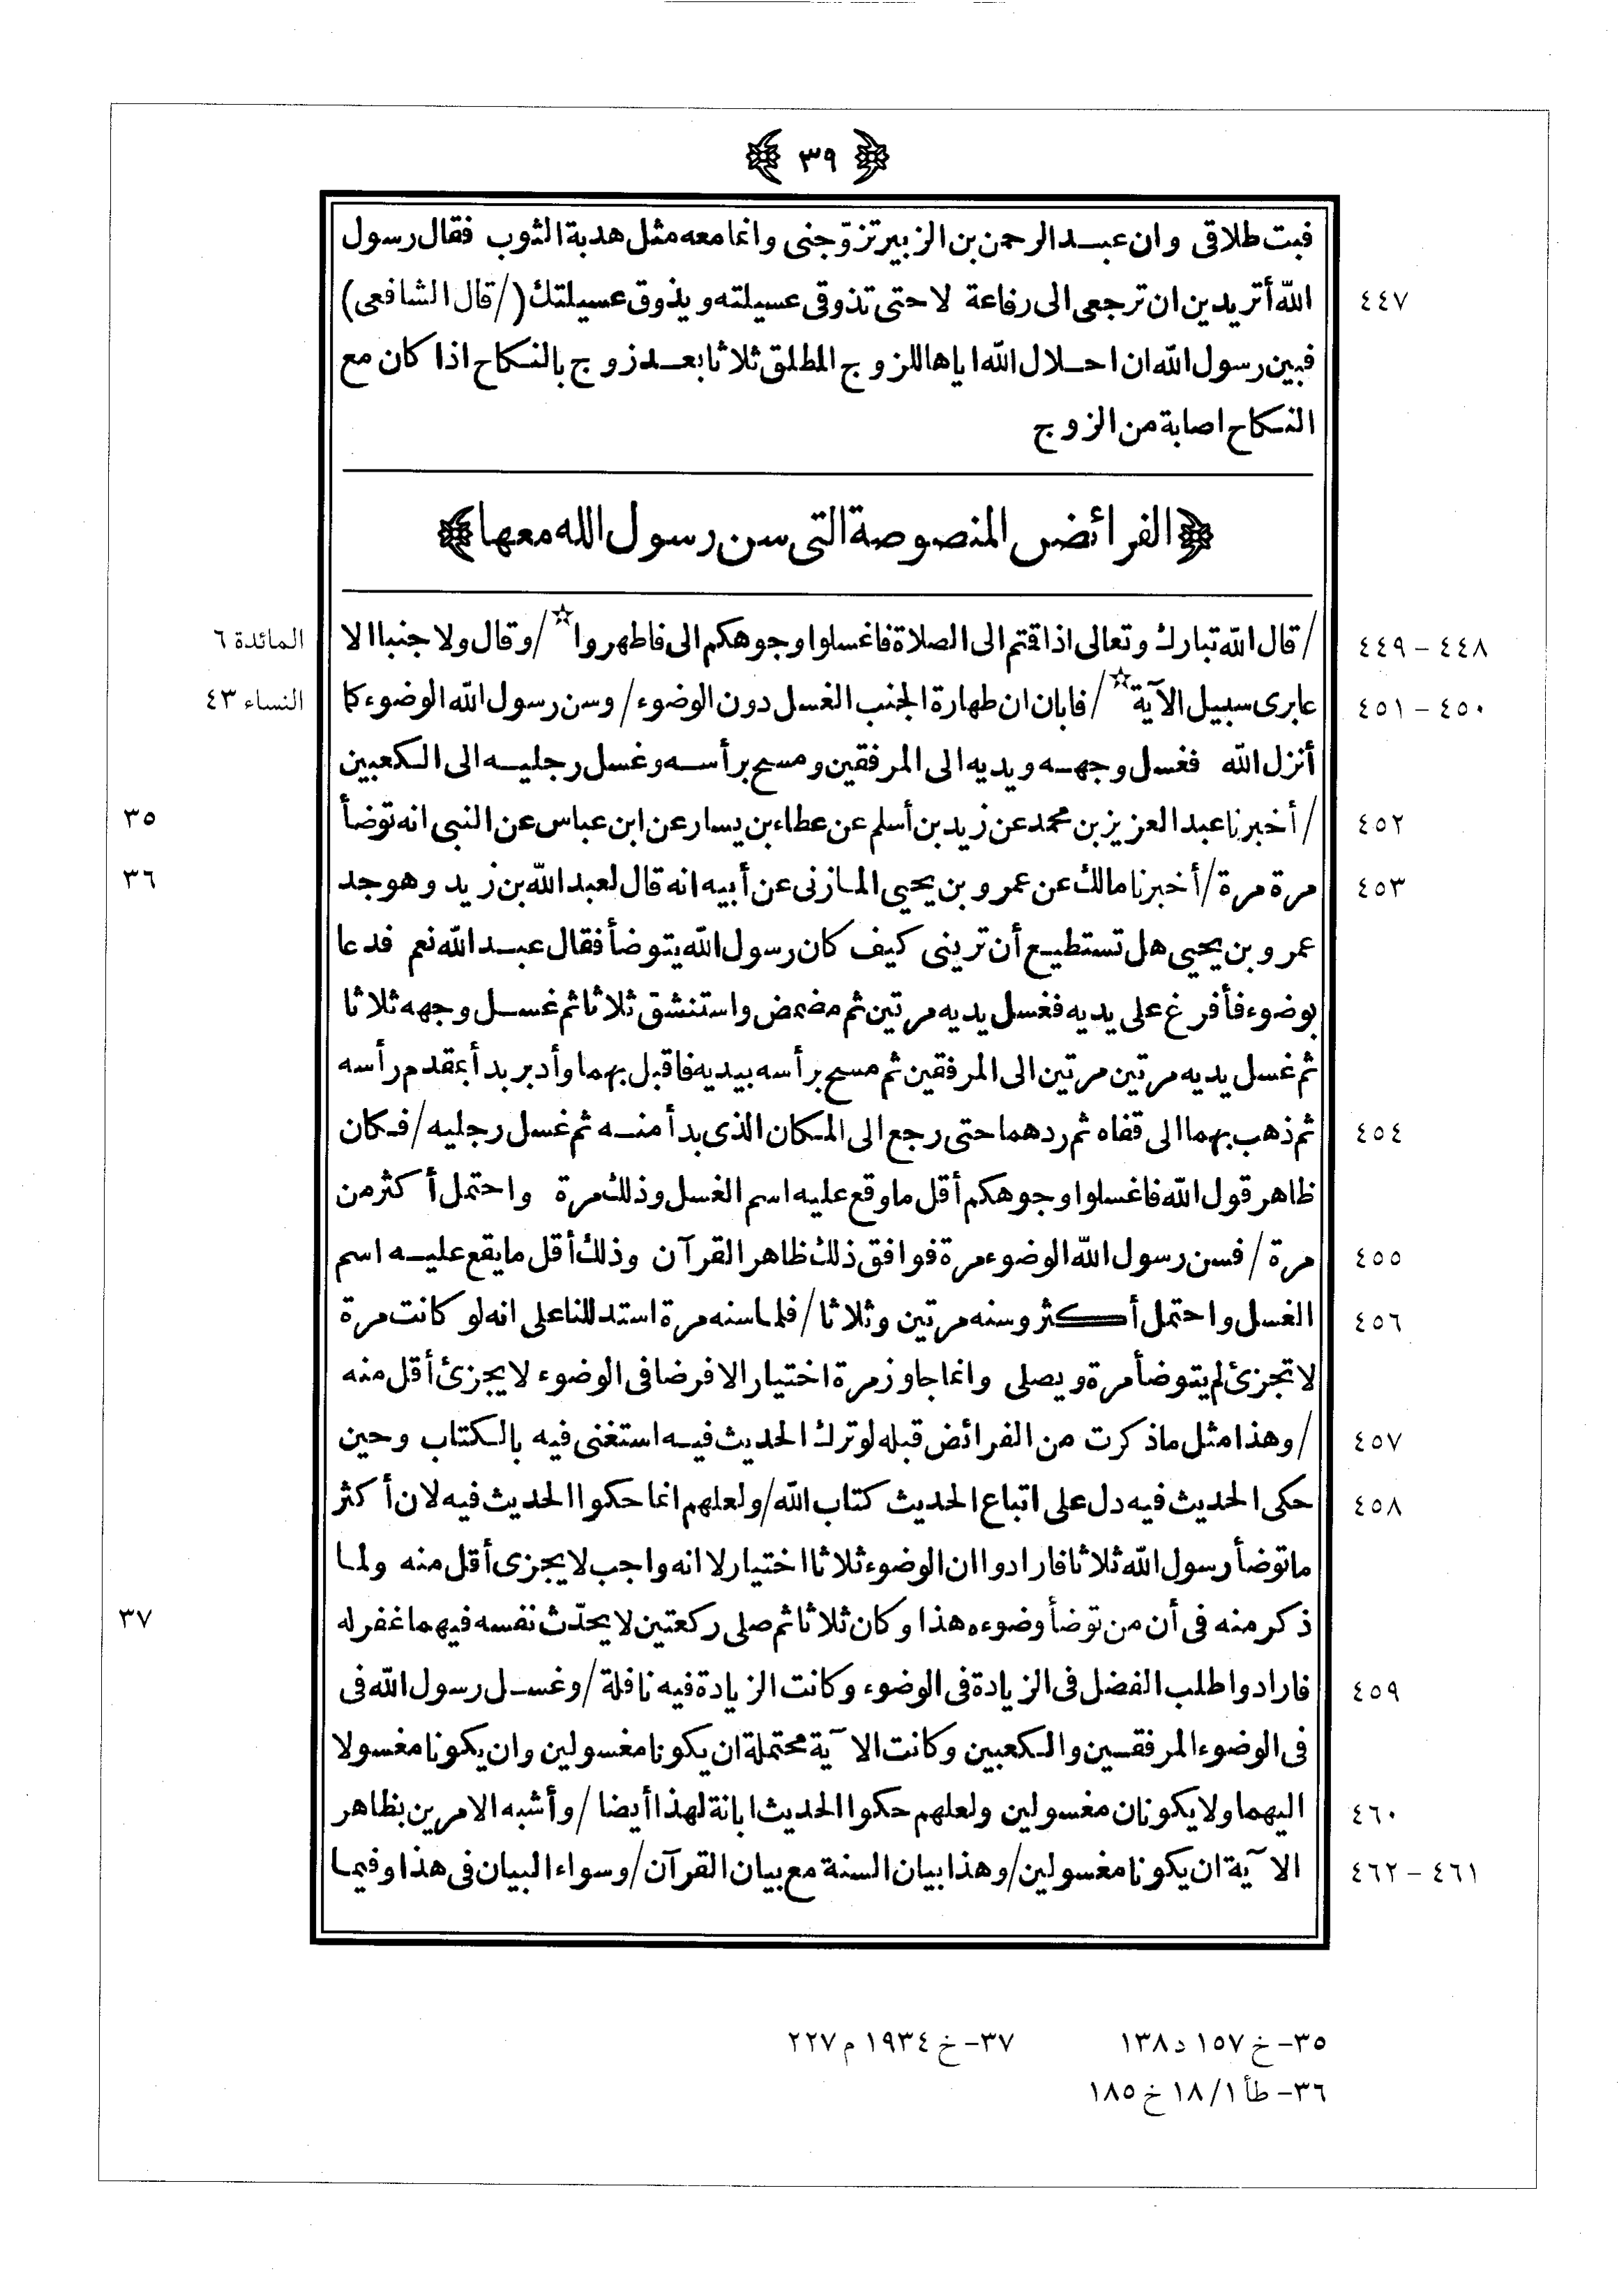 ﴿ ٣٩ ﴾
فبت طلاقى وان عبد الرحمن بن الزبير تزوّجنى وانما معه مثل هدبة الثوب فقال رسول
٤٤٧ الله أتريدين ان ترجعى الى رفاعة لا حتى تذوقى عسيلته ويذوق عسيلتك (/قال الشافعى)
فبين رسول الله ان احلال الله اياها للزوج المطلق ثلاثا بعد زوج بالنكاح اذا كان مع
النكاح اصابة من الزوج
﴿الفرائض المنصوصة التى سن رسول الله معها﴾
٤٤٨ – ٤٤٩ /قال الله تبارك وتعالى اذا قمتم الى الصلاة فاغسلوا وجوهكم الى فاطهروا☆/وقال ولا جنبا الا المائدة ٦
٤٥٠ – ٤٥١ عابرى سبيل الآية☆/فابان ان طهارة الجنب الغسل دون الوضوء/وسن رسول الله الوضوء كما النساء ٤٣
أنزل الله فغسل وجهه ويديه الى المرفقين ومسح برأسه وغسل رجليه الى الكعبين
٤٥٢ /أخبرنا عبد العزيز بن محمد عن زيد بن أسلم عن عطاء بن يسار عن ابن عباس عن النبى انه توضأ ٣٥
٤٥٣ مرة مرة/أخبرنا مالك عن عمرو بن يحيى المازنى عن أبيه انه قال لعبد الله بن زيد وهو جد ٣٦
عمرو بن يحيى هل تستطيع أن ترينى كيف كان رسول الله يتوضأ فقال عبد الله نعم فدعا
بوضوء فأفرغ على يديه فغسل يديه مرتين ثم مضمض واستنشق ثلاثا ثم غسل وجهه ثلاثا
ثم غسل يديه مرتين مرتين الى المرفقين ثم مسح برأسه بيديه فاقبل بهما وأدبر بدأ بمقدم رأسه
٤٥٤ ثم ذهب بهما الى قفاه ثم ردهما حتى رجع الى المكان الذى بدأ منه ثم غسل رجليه/فكان
ظاهر قول الله فاغسلوا وجوهكم أقل ما وقع عليه اسم الغسل وذلك مرة واحتمل أكثر من
٤٥٥ مرة/فسن رسول الله الوضوء مرة فوافق ذلك ظاهر القرآن وذلك أقل ما يقع عليه اسم
٤٥٦ الغسل واحتمل أكثر وسنه مرتين وثلاثا/فلما سنه مرة استدللنا على انه لو كانت مرة
لا تجزئ لم يتوضأ مرة ويصلى وانما جاوز مرة اختيار الا فرضا فى الوضوء لا يجزئ أقل منه
٤٥٧ /وهذا مثل ما ذكرت من الفرائض قبله لو ترك الحديث فيه استغنى فيه بالكتاب وحين
٤٥٨ حكى الحديث فيه دل على اتباع الحديث كتاب الله/ولعلهم انما حكوا الحديث فيه لان أكثر
ما توضأ رسول الله ثلاثا فارادوا ان الوضوء ثلاثا اختيار لا انه واجب لا يجزى أقل منه ولما
ذكر منه فى أن من توضأ وضوءه هذا وكان ثلاثا ثم صلى ركعتين لا يحدّث نفسه فيهما غفر له ٣٧
٤٥٩ فارادوا طلب الفضل فى الزيادة فى الوضوء وكانت الزيادة فيه نافلة/وغسل رسول الله فى
فى الوضوء المرفقين والكعبين وكانت الآية محتملة ان يكونا مغسولين وان يكونا مغسولا
٤٦٠ اليهما ولا يكونان مغسولين ولعلهم حكوا الحديث ابانة لهذا أيضا/وأشبه الامرين بظاهر
٤٦١ – ٤٦٢ الآية ان يكونا مغسولين/وهذا بيان السنة مع بيان القرآن/وسواء البيان فى هذا وفيما
٣٥– خ ١٥٧ د ١٣٨ ٣٧– خ ١٩٣٤ م ٢٢٧
٣٦– طأ ١٨/١ خ ١٨٥